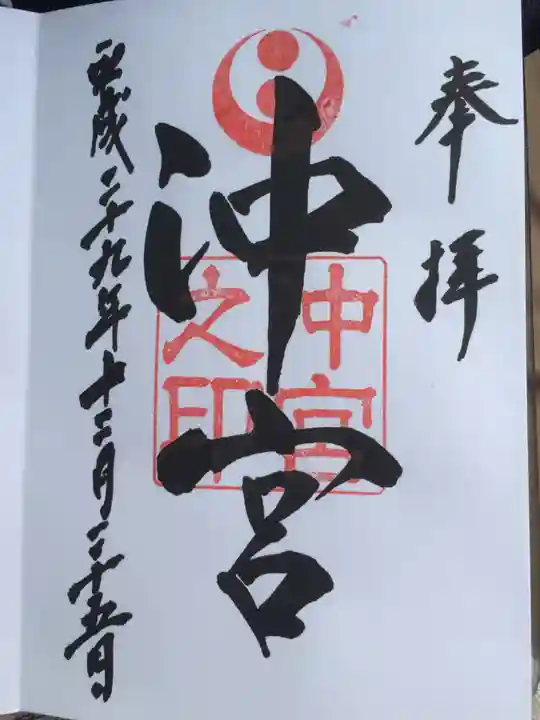 奉拝
沖宮
沖宮之印
平成二十九年十二月二十五日